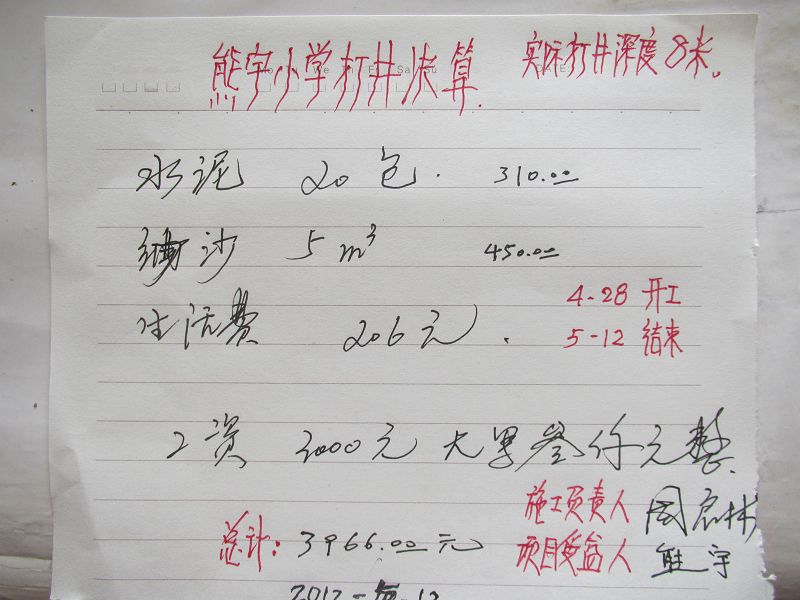 熊宇小学打井决算. 实际打井深度8米。
水泥 20包. 310.00
沙 5m³ 450.00
生活费 206元.
4-28 开工
5-12 结束
工资 3000元 大写叁仟元整.
施工负责人 周启林
总计: 3966.00元
项目受益人 熊宇